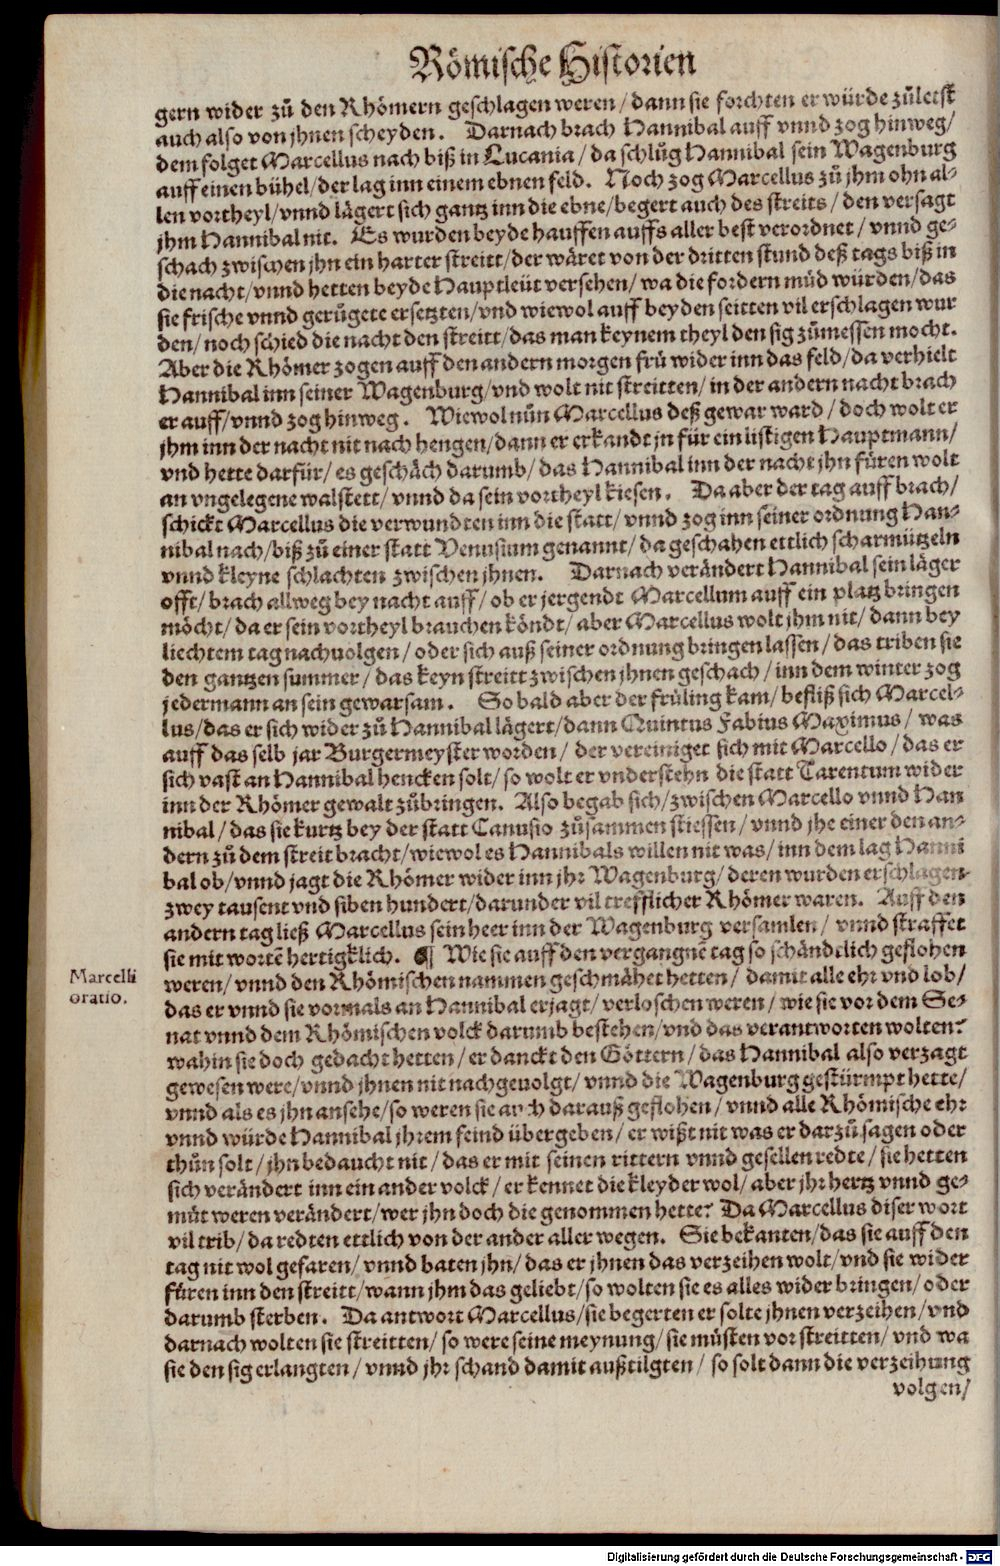 Römische Historien
gern wider zů den Rhömern geschlagen weren / dann sie forchten er würde zůletst
auch also von jhnen scheyden. Darnach brach Hannibal auff vnnd zog hinweg/
dem folget Marcellus nach biß in Lucania / da schlůg Hannibal sein Wagenburg
auff einen bühel/der lag inn einem ebnen feld. Noch zog Marcellus zů jhm ohn al-
len vortheyl/vnnd lägert sich gantz inn die ebne/begert auch des streits / den versagt
jhm Hannibal nit. Es wurden beyde hauffen auffs aller best verordnet / vnnd ge-
schach zwischen jhn ein harter streitt/der wäret von der dritten stund deß tags biß in
die nacht/vnnd hetten beyde Hauptleüt versehen/ wa die fordern müd würden/das
sie frische vnnd gerůgete ersetzten/vnd wiewol auff beyden seitten vil erschlagen wur
den/ noch schied die nacht den streitt/das man keynem theyl den sig zůmessen mocht.
Aber die Rhömer zogen auff den andern morgen frů wider inn das feld/da verhielt
Hannibal inn seiner Wagenburg/vnd wolt nit streitten/ in der andern nacht brach
er auff/vnnd zog hinweg. Wiewol nůn Marcellus deß gewar ward / doch wolt er
jhm inn der nacht nit nach hengen/dann er erkandt jn für ein listigen Hauptmann/
vnd hette darfür/ es geschäch darumb/ das Hannibal inn der nacht jhn füren wolt
an vngelegene walstett/ vnnd da sein vortheyl kiesen. Da aber der tag auff brach/
schickt Marcellus die verwundten inn die statt/ vnnd zog inn seiner ordnung Han-
nibal nach/biß zů einer statt Venusium genannt/ da geschahen ettlich scharmützeln
vnnd kleyne schlachten zwischen jhnen. Darnach verändert Hannibal sein läger
offt/ brach allweg bey nacht auff/ ob er jergendt Marcellum auff ein platz bringen
möcht/ da er sein vortheyl brauchen köndt/ aber Marcellus wolt jhm nit/ dann bey
liechtem tag nachuolgen/ oder sich auß seiner ordnung bringen lassen/ das triben sie
den gantzen summer/ das keyn streitt zwischen jhnen geschach / inn dem winter zog
jedermann an sein gewarsam. So bald aber der früling kam/ befliß sich Marcel-
lus/das er sich wider zů Hannibal lägert/dann Quintus Fabius Maximus/ was
auff das selb jar Burgermeyster worden/ der vereiniget sich mit Marcello / das er
sich vast an Hannibal hencken solt/ so wolt er vnderstehn die statt Tarentum wider
inn der Rhömer gewalt zůbringen. Also begab sich/zwischen Marcello vnnd Han
nibal/ das sie kurtz bey der statt Canusio zůsammen stiessen/ vnnd jhe einer den an-
dern zů dem streit bracht/wiewol es Hannibals willen nit was/ inn dem lag Hanni
bal ob/vnnd jagt die Rhömer wider inn jhr Wagenburg/ deren wurden erschlagen
zwey tausent vnd siben hundert/darunder vil trefflicher Rhömer waren. Auff den
andern tag ließ Marcellus sein heer inn der Wagenburg versamlen/ vnnd straffet
sie mit wortē hertigklich. ¶ Wie sie auff den vergangnē tag so schändtlich geflohen
weren/ vnnd den Rhömischen nammen geschmähet hetten/ damit alle ehr vnd lob/
das er vnnd sie vormals an Hannibal erjagt/ verloschen weren/ wie sie vor dem Se-
nat vnnd dem Rhömischen volck darumb bestehen/vnd das verantworten wolten?
wahin sie doch gedacht hetten/ er danckt den Göttern/ das Hannibal also verzagt
gewesen were/vnnd jhnen nit nachgeuolgt/ vnnd die Wagenburg gestürmpt hette/
vnnd als es jhn ansehe/so weren sie auch darauß geflohen/ vnnd alle Rhömische ehr
vnnd würde Hannibal jhrem feind übergeben/ er wißt nit was er darzů sagen oder
thůn solt/ jhn bedaucht nit/ das er mit seinen rittern vnnd gesellen redte/ sie hetten
sich verändert inn ein ander volck/ er kennet die kleyder wol/ aber jhr hertz vnnd ge-
müt weren verändert/wer jhn doch die genommen hette? Da Marcellus diser wort
vil trib/ da redten ettlich von der ander aller wegen. Sie bekanten/das sie auff den
tag nit wol gefaren/ vnnd baten jhn/ das er jhnen das verzeihen wolt/vnd sie wider
füren inn den streitt/wann jhm das geliebt/so wolten sie es alles wider bringen/ oder
darumb sterben. Da antwort Marcellus/sie begerten er solte jhnen verzeihen/ vnd
darnach wolten sie streitten/ so were seine meynung/ sie müsten vor streitten/ vnd wa
sie den sig erlangten/ vnnd jhr schand damit außtilgten/ so solt dann die verzeihung
volgen/
Marcelli
oratio.
Digitalisierung gefördert durch die Deutsche Forschungsgemeinschaft - DFG